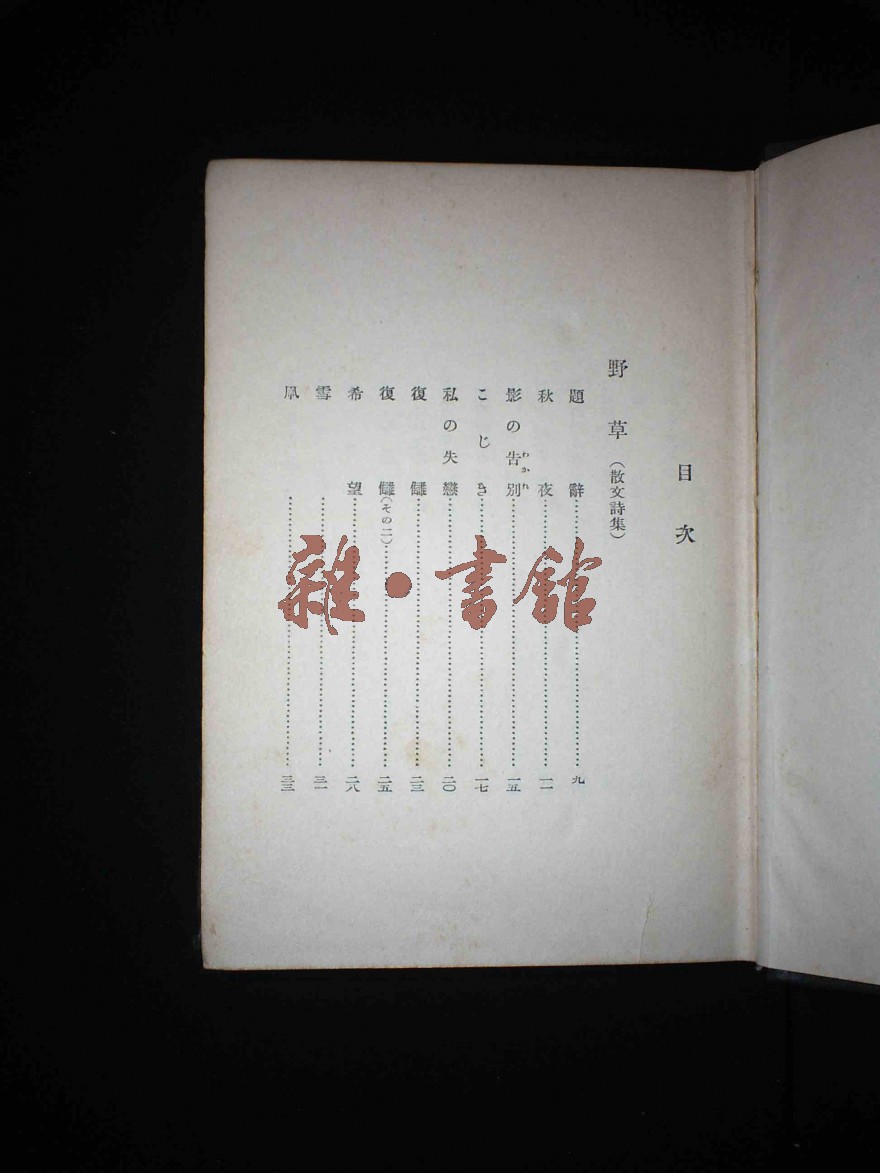 目次
野草（散文詩集）
題辭……九
秋夜……一一
影の告別……一五
わかれ
こじき……一七
私の失戀……二〇
復讎……二三
復讎（その二）……二五
希望……二八
雪……三一
凧……三三
雜・書館